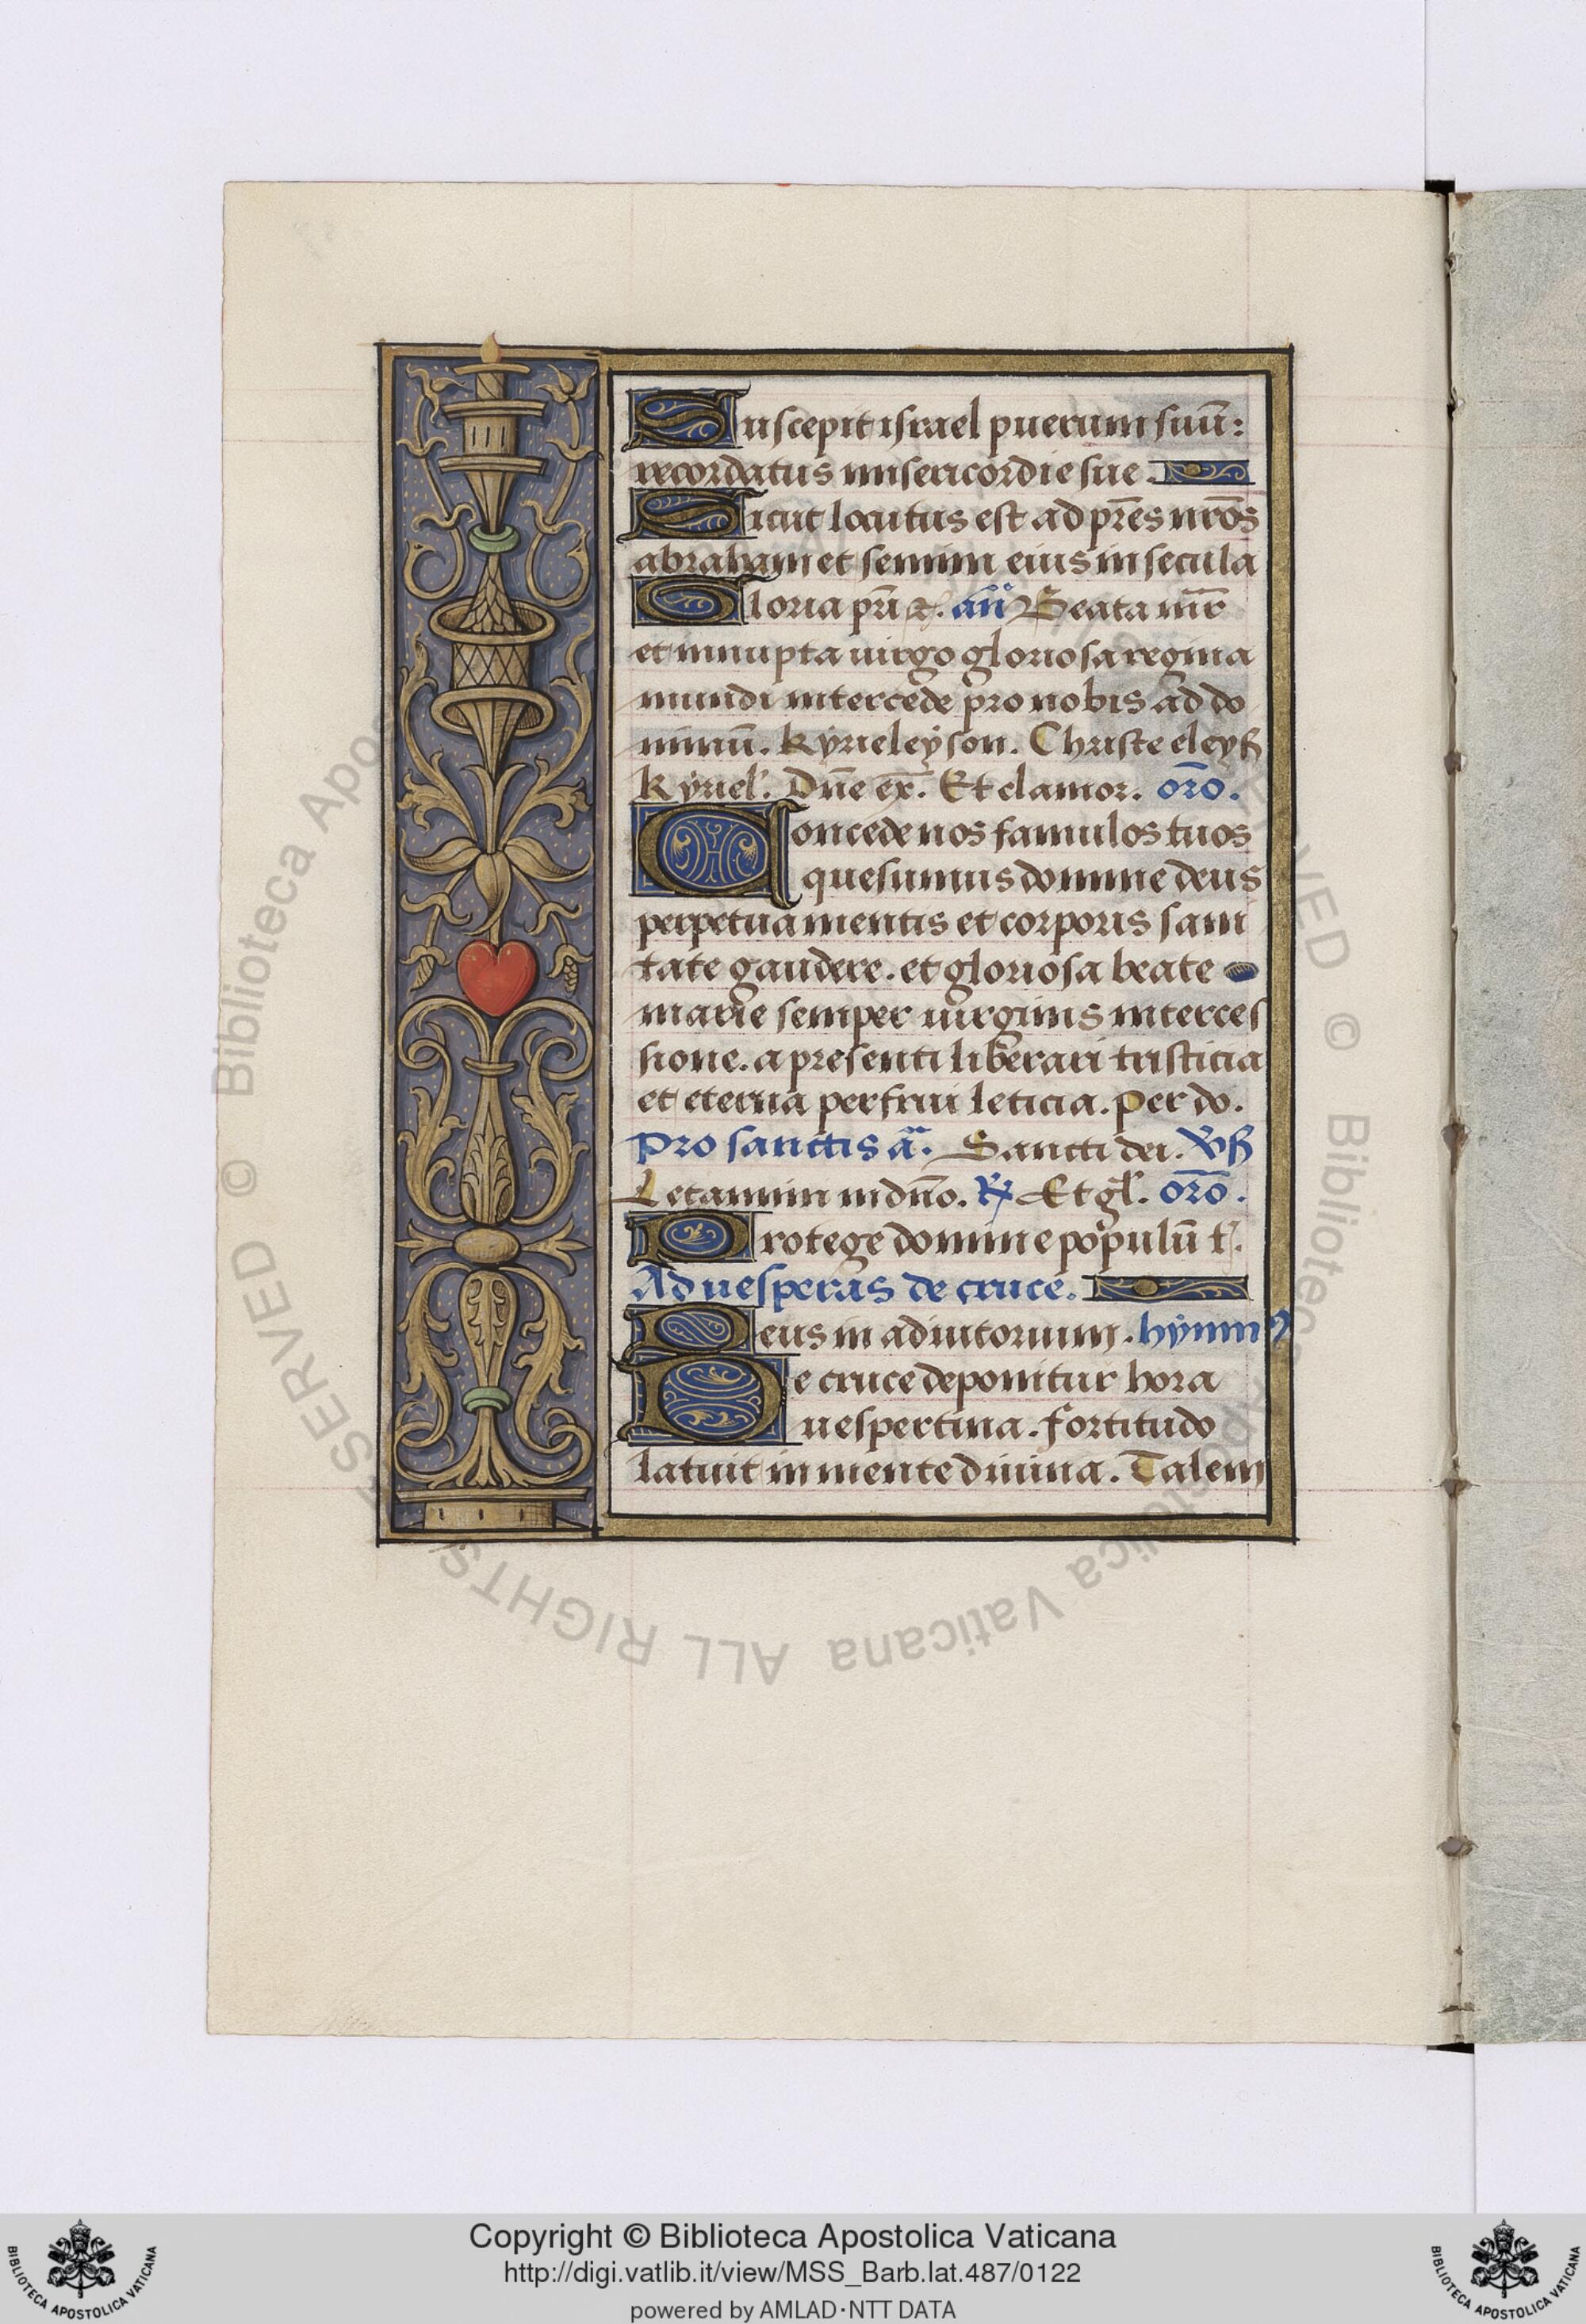 Suscepit israel puerum suū:
recordatus misericordie sue.
Sicut locutus est ad pr̄es nr̄os
abraham et semini eius in secula
Gloria pr̄i ⁊c̃. añ Beata mr̄
et innupta uirgo gloriosa regina
mundi intercede pro nobis ad do
minū. Kyrieleyson. Christe eleys̃
Kyriel'. Dñe ex̄. Et clamor. or̄o.
Concede nos famulos tuos
quesumus domine deus
perpetua mentis et corporis sani
tate gaudere. et gloriosa beate
marie semper uirginis interces
sione. a presenti liberari tristicia
et eterna perfrui leticia. Per do.
Pro sanctis ā. Sancti dei. v̾s̃
Letamini in dño. ℟ Et gl̃. or̄o.
Protege domine populū t̃.
Ad uesperas de cruce.
Deus in adiutorium. hymnꝰ
De cruce deponitur hora
uespertina. fortitudo
latuit in mente diuina. Talem
© Biblioteca Apostolica Vaticana ALL RIGHTS RESERVED
Copyright © Biblioteca Apostolica Vaticana
http://digi.vatlib.it/view/MSS_Barb.lat.487/0122
powered by AMLAD·NTT DATA
BIBLIOTECA APOSTOLICA VATICANA
BIBLIOTECA APOSTOLICA VATICANA